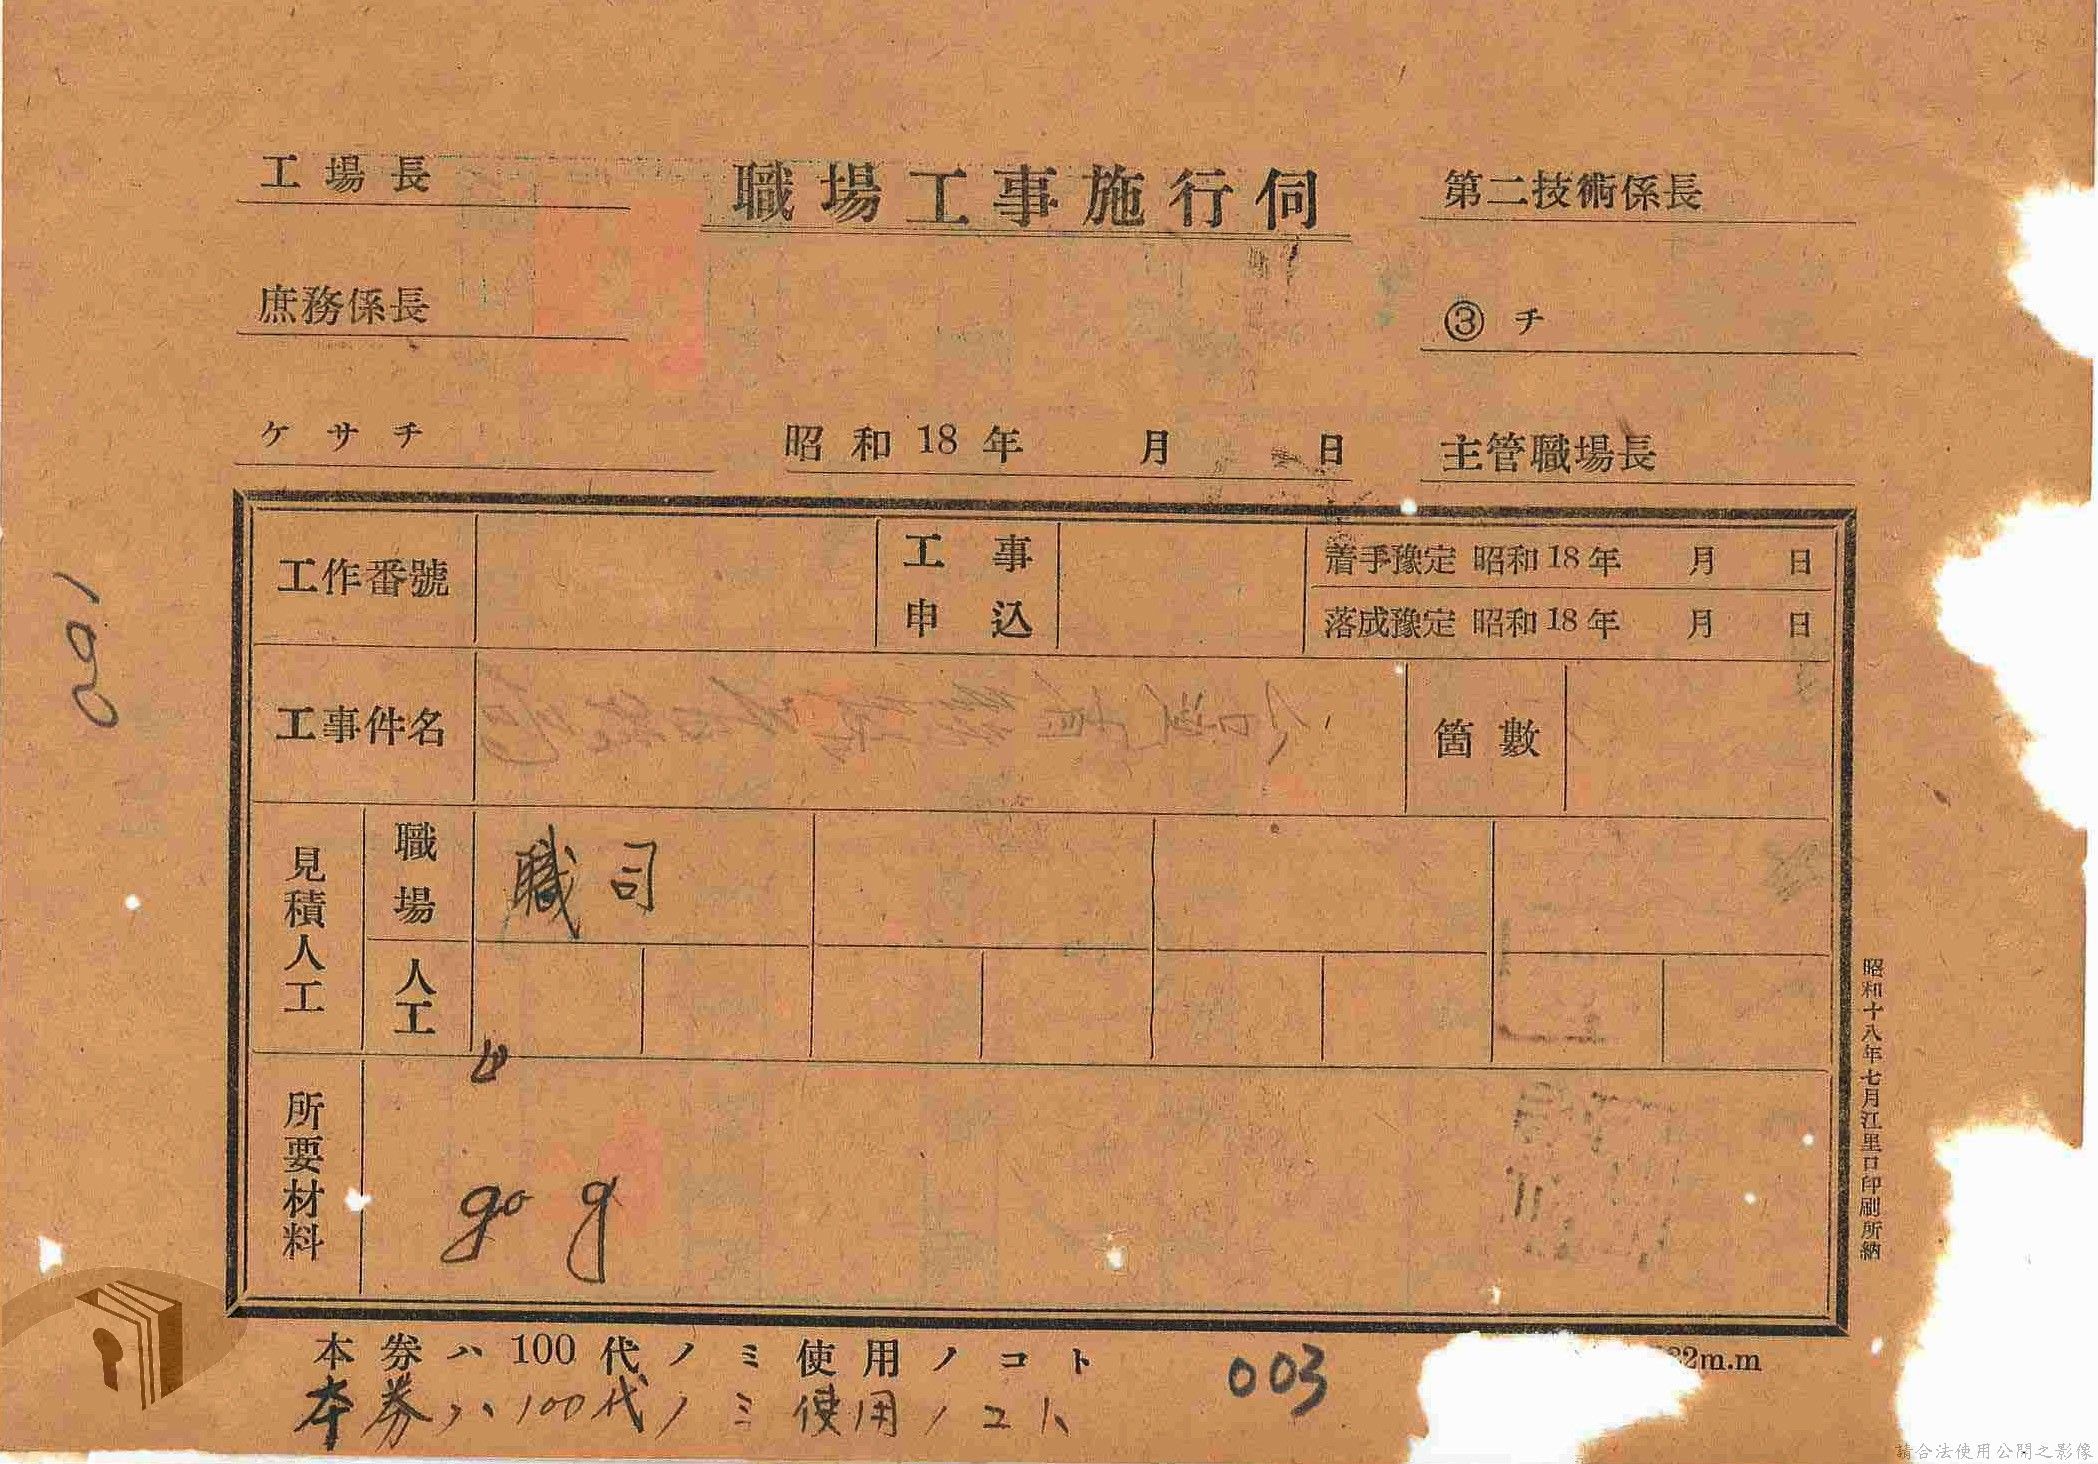 職場工事施行伺
工場長
第二技術係長
庶務係長
③ チ
ケサチ
昭和18年 月 日
主管職場長
工作番號
工事申込
着手豫定 昭和18年 月 日
落成豫定 昭和18年 月 日
工事件名
箇數
見積人工
職場
職司
人工
所要材料
go g
昭和十八年七月江里口印刷所納
本券ハ100代ノミ使用ノコト
本券ハ100代ノミ使用ノコト
003
001
m.m
請合法使用公開之影像